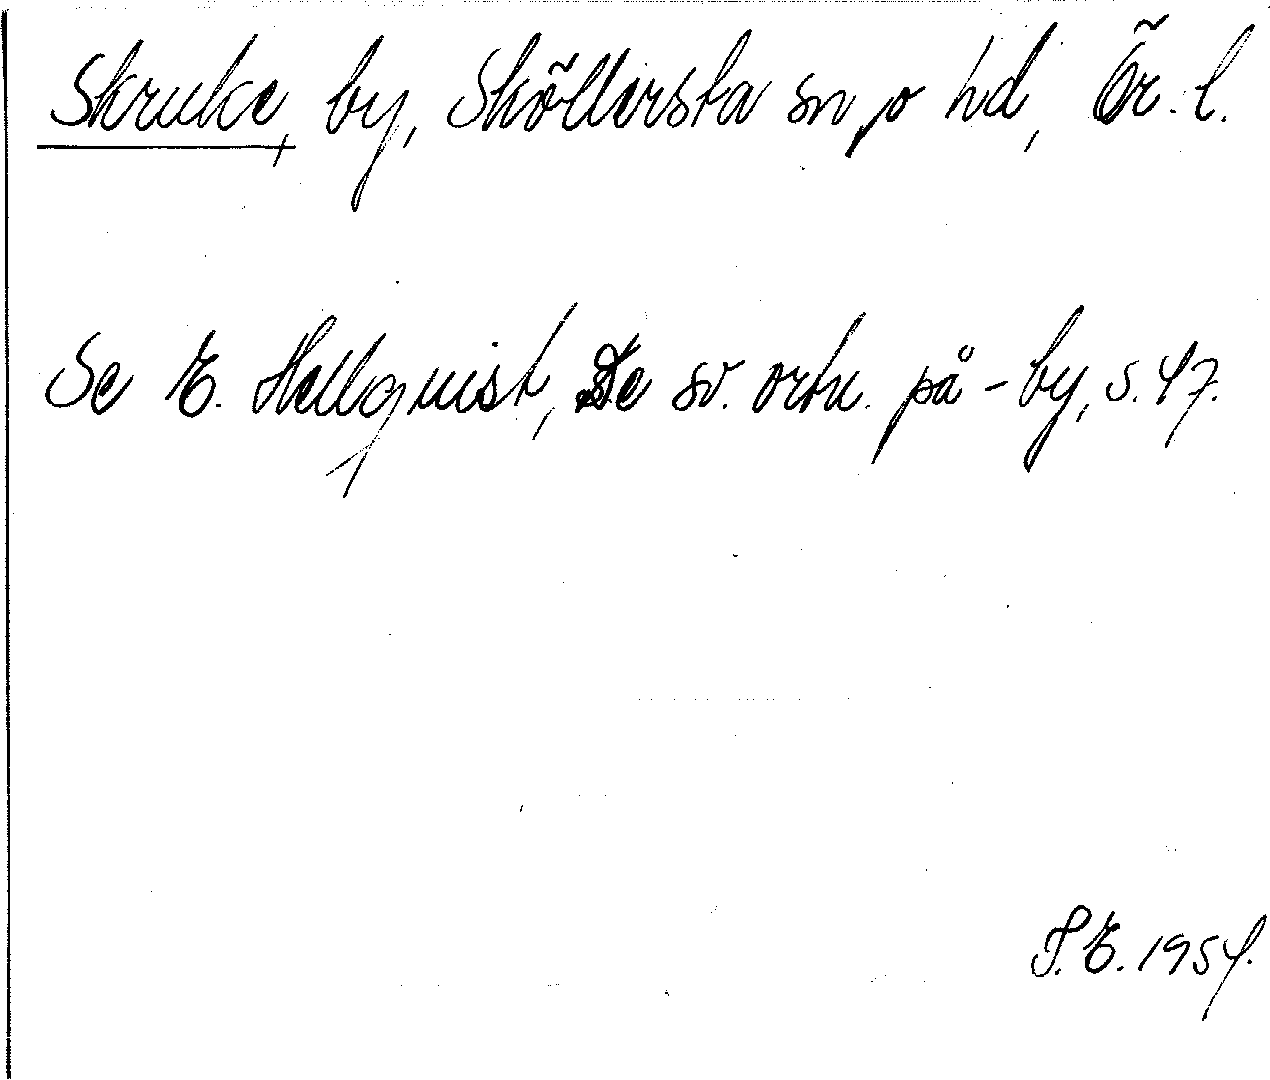 Skruke, by, Sköllersta sn o hd, Ör. l.
Se E. Hellquist, De sv. ortn. på -by, s. 47.
P.E. 1954.